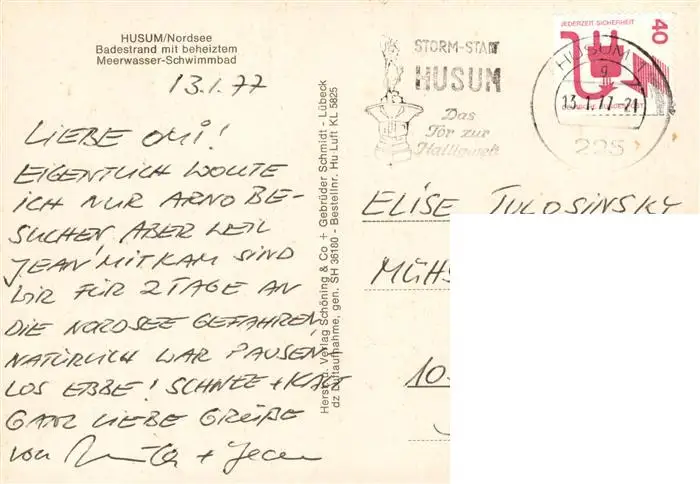 HUSUM/Nordsee
Badestrand mit beheiztem
Meerwasser-Schwimmbad
13.1.77
LIEBE OMI!
EIGENTLICH WOLLTE
ICH NUR ARNO BE-
SUCHEN, ABER WEIL
JEAN MITKAM SIND
WIR FÜR 2 TAGE AN
DIE NORDSEE GEFAHREN,
NATÜRLICH WAR PAUSEN
LOS EBBE! SCHNEE + KALT
GANZ LIEBE GRÜßE
von + Jean
Herst. u. Verlag Schöning & Co + Gebrüder Schmidt - Lübeck
dz Luftaufnahme, gen. SH 36180 - Bestellnr. Hu Luft KL 5825
STORM-STADT
HUSUM
Das
Tor zur
Halligwelt
JEDERZEIT SICHERHEIT
40
DEUTSCHE BUNDESPOST
HUSUM 1
g
13.1.77-21
225
ELISE TULOSINSKY
MÜHS
10